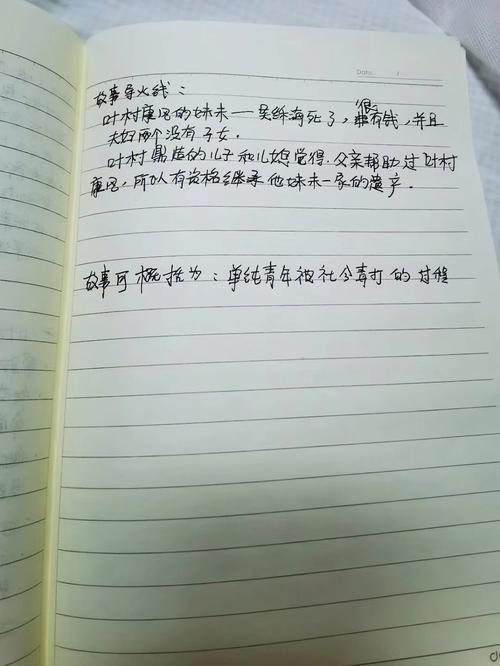 Date: /
故事导火线：
叶村康晃的妹夫——吴纾海死了，很有钱，并且
夫妇两个没有子女。
叶村鼎造的儿子和儿媳觉得.父亲帮助过叶村
康晃，所以人有资格继承他妹夫一家的遗产.
故事可概括为：单纯青年被社会毒打的过程